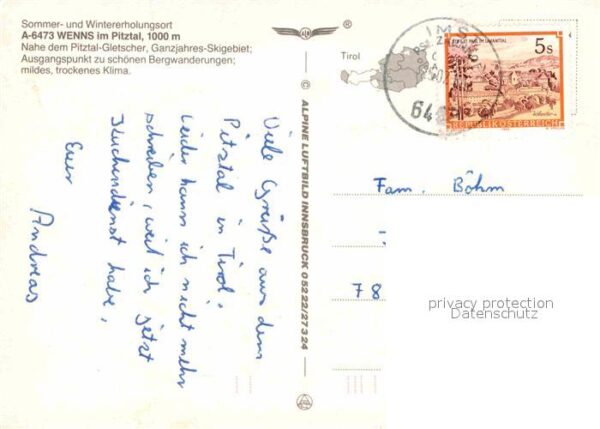 Sommer- und Wintererholungsort
A-6473 WENNS im Pitztal, 1000 m
Nahe dem Pitztal-Gletscher, Ganzjahres-Skigebiet;
Ausgangspunkt zu schönen Bergwanderungen;
mildes, trockenes Klima.
Viele Grüße aus dem
Pitztal in Tirol.
Leider kann ich nicht mehr
schreiben, weil ich jetzt
Küchendienst habe.
Euer
Andreas
© ALPINE LUFTBILD INNSBRUCK 05222/27324
®
Tirol
IMST
5s
REPUBLIK ÖSTERREICH
Fam. Böhm
78
privacy protection
Datenschutz